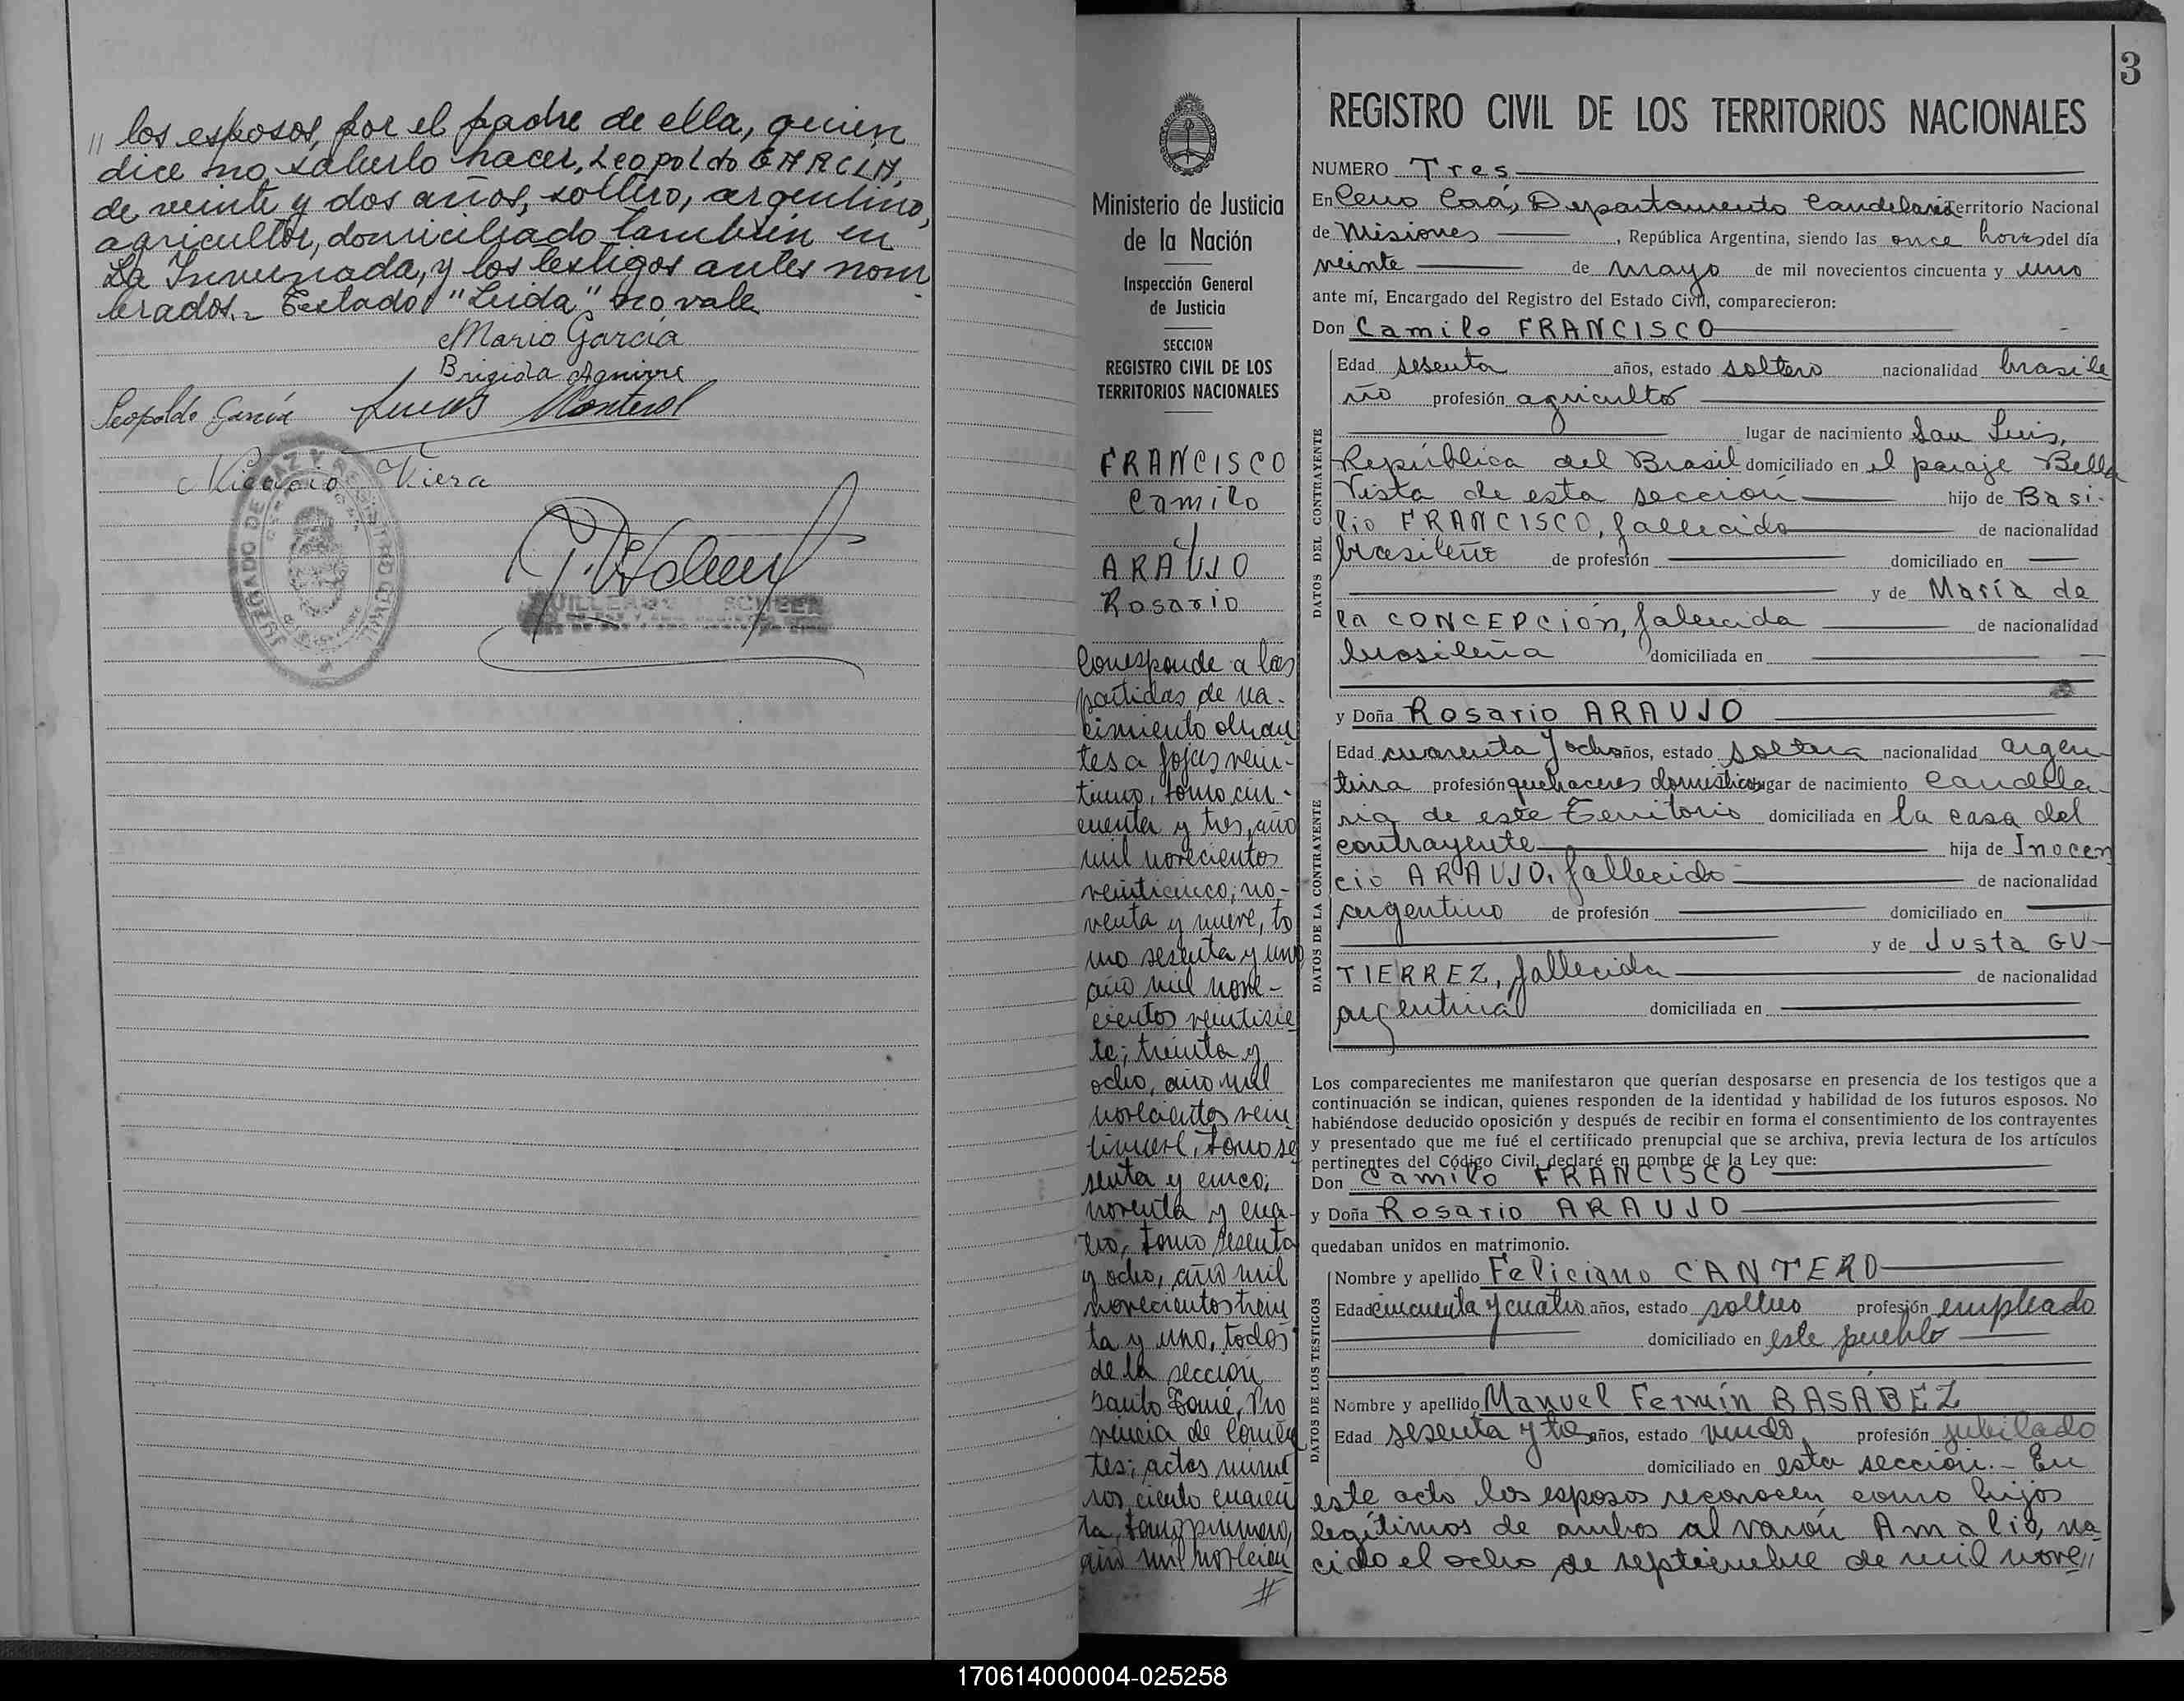 // los esposos, por el padre de ella, quien
dice no saberlo hacer, Leopoldo GARCIA,
de veinte y dos años, soltero, argentino,
agricultor, domiciliado también en
La Invernada, y los testigos antes nom
brados.- Testado "Leida" no vale
Mario García
Brigida Aguirre
Leopoldo García
Viera
JUZGADO DE PAZ Y REGISTRO CIVIL
3
REGISTRO CIVIL DE LOS TERRITORIOS NACIONALES
NUMERO Tres
En Cerro Corá, Departamento Candelaria Territorio Nacional
de Misiones, República Argentina, siendo las once horas del día
veinte de mayo de mil novecientos cincuenta y uno
ante mí, Encargado del Registro del Estado Civil, comparecieron:
Don Camilo FRANCISCO
Edad sesenta años, estado soltero nacionalidad brasile
ño profesión agricultor
lugar de nacimiento San Luis,
República del Brasil domiciliado en el paraje Bella
Vista de esta sección hijo de Basi-
lio FRANCISCO, fallecido de nacionalidad
brasileña de profesión domiciliado en
y de María de
la CONCEPCIÓN, fallecida de nacionalidad
brasileña domiciliada en
y Doña Rosario ARAUJO
Edad cuarenta y ocho años, estado soltera nacionalidad argen-
tina profesión quehaceres domésticos lugar de nacimiento Candela-
ria de este Territorio domiciliada en la casa del
contrayente hija de Inocen
cio ARAUJO, fallecido de nacionalidad
argentino de profesión domiciliado en
y de Justa GU-
TIERREZ, fallecida de nacionalidad
argentina domiciliada en
DATOS DEL CONTRAYENTE
DATOS DE LA CONTRAYENTE
Los comparecientes me manifestaron que querían desposarse en presencia de los testigos que a
continuación se indican, quienes responden de la identidad y habilidad de los futuros esposos. No
habiéndose deducido oposición y después de recibir en forma el consentimiento de los contrayentes
y presentado que me fué el certificado prenupcial que se archiva, previa lectura de los artículos
pertinentes del Código Civil, declaré en nombre de la Ley que:
Don Camilo FRANCISCO
y Doña Rosario ARAUJO
quedaban unidos en matrimonio.
Nombre y apellido Feliciano CANTERO
Edad cincuenta y cuatro años, estado soltero profesión empleado
domiciliado en este pueblo
Nombre y apellido Manuel Fermín BASÁBEZ
Edad sesenta y años, estado viudo profesión jubilado
domiciliado en esta sección.- En
este acto los esposos reconocen como hijos
legítimos de ambos al varón Amalio, na
cido el ocho de septiembre de mil nove//
DATOS DE LOS TESTIGOS
Ministerio de Justicia
de la Nación
Inspección General
de Justicia
SECCION
REGISTRO CIVIL DE LOS
TERRITORIOS NACIONALES
FRANCISCO
Camilo
y
ARAUJO
Rosario
Corresponde a las
partidas de na-
cimiento obran
tes a fojas vein-
tiuno, tomo cin-
cuenta y tres, año
mil novecientos
veinticinco; no-
venta y nueve, to
mo sesenta y uno
año mil nove-
cientos veintisie
te; treinta y
ocho, año mil
novecientos vein
tinueve, tomo se
senta y cinco;
noventa y cua-
tro, tomo sesenta
y ocho, año mil
novecientos trein
ta y uno, todos
de la sección
Santo Tomé, Pro
vincia de Corrien
tes; actas núme
ros ciento cuaren
ta, tomo primero,
año mil novecien
//
170614000004-025258